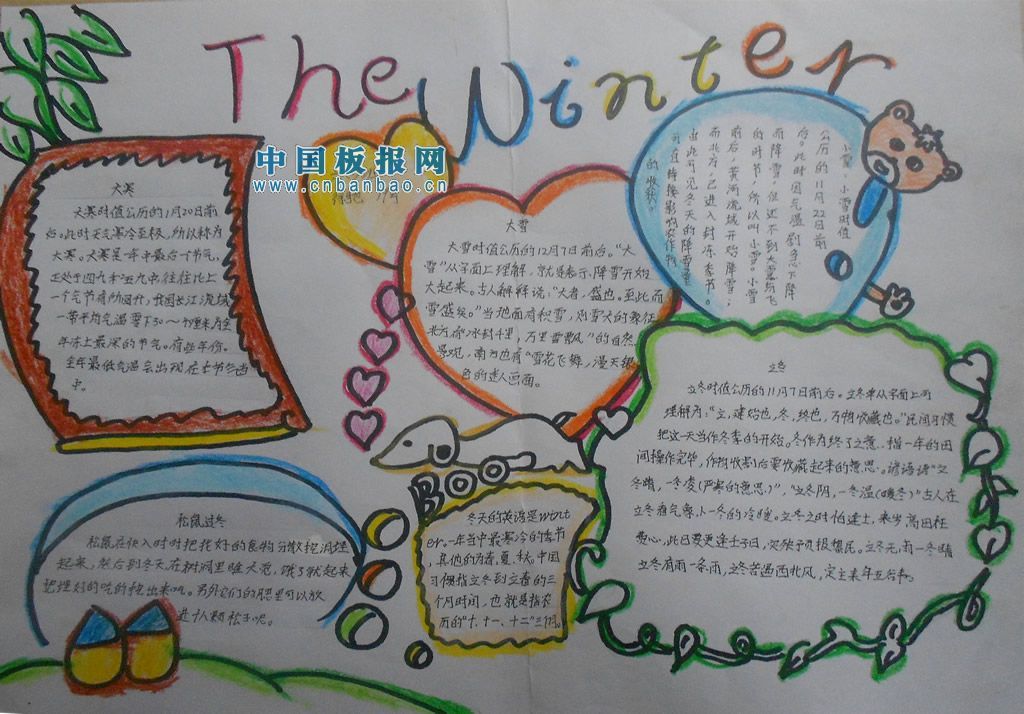 The Winter
中国板报网
www.cnbanbao.cn
大寒
大寒时值公历的1月20日前
后。此时天气寒冷至极,所以称为
大寒。大寒是一年中最后一节气,
正处于四九末五九中,往往比上
一个气节有所回升,我国长江流域
一带平均气温零下
年冻土最深的节气。有些年份,
全年最低气温会出现在本节气当
中。
大雪
大雪时值公历的12月7日前后。“大
雪”从字面上理解,就是表示,降雪开始
大起来。古人解释说:“大者,盛也。至此而
雪盛矣。”当地面有积雪,则雪大的象征
北方有“冰封千里,万里雪飘”的自然
景观,南方也有“雪花飞舞,漫天银
色的迷人画面。
小雪,小雪时值
公历的11月22日前
后。此时因气温急剧下降
而降雪,但还不到大雪纷飞
的时节,所以叫小雪。小雪
前后,黄河流域开始降雪;
而北方,已进入封冻季节。
由此可见冬天的降雪量
可直接影响农作物
的收获。
立冬
立冬时值公历的11月7日前后。立冬单从字面上而
理解为:“立,建始也,冬,终也,万物收藏也。”民间习惯
把这一天当作冬季的开始。冬作为终了之意,指一年的田
间操作完毕,作物收割后要收藏起来的意思。谚语讲“立
冬晴,一冬凌(严寒的意思)”,“立冬阴,一冬温(暖冬)”古人在
立冬看气象
立冬有雨一条雨,立冬若遇西北风,定主来年五谷丰。
松鼠过冬
松鼠在秋入时时把找好的食物分散挖洞埋
起来,然后到冬天在树洞里睡大觉,饿了就起来
把埋好的吃的挖出来吃。另外它们的腮里可以放
进十八颗松子呢。
Boo
冬天的英语是Wint
er。一年当中最寒冷的季节
,其他的为春、夏、秋。中国
习惯指立冬到立春的三
个月时间,也就是指农
历的“十、十一、十二”三个月。